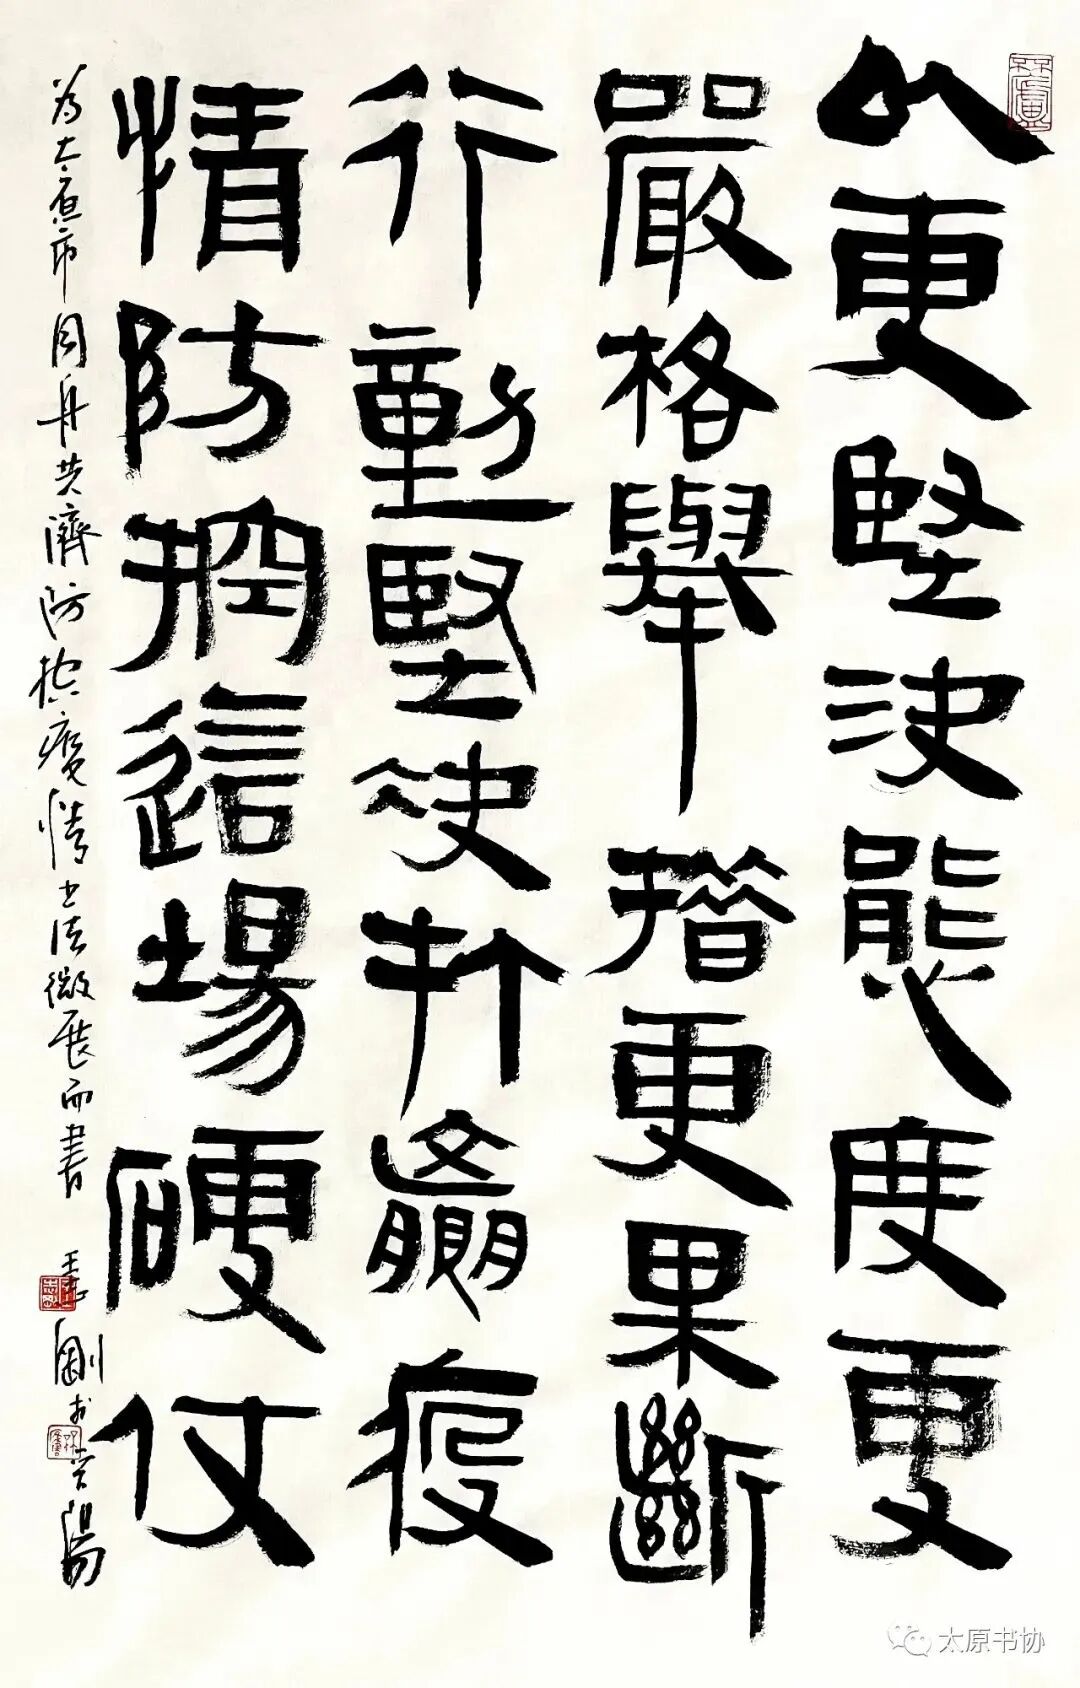 以更堅決態度更
嚴格舉措更果斷
行動堅決打贏疫
情防控這場硬仗
為太原市同舟共濟防控疫情書法微展而書 王志剛於晉陽
太原书协